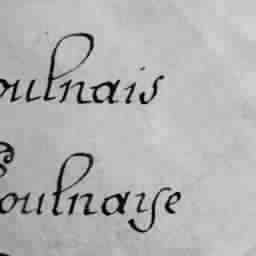 oulnais
oulnaise